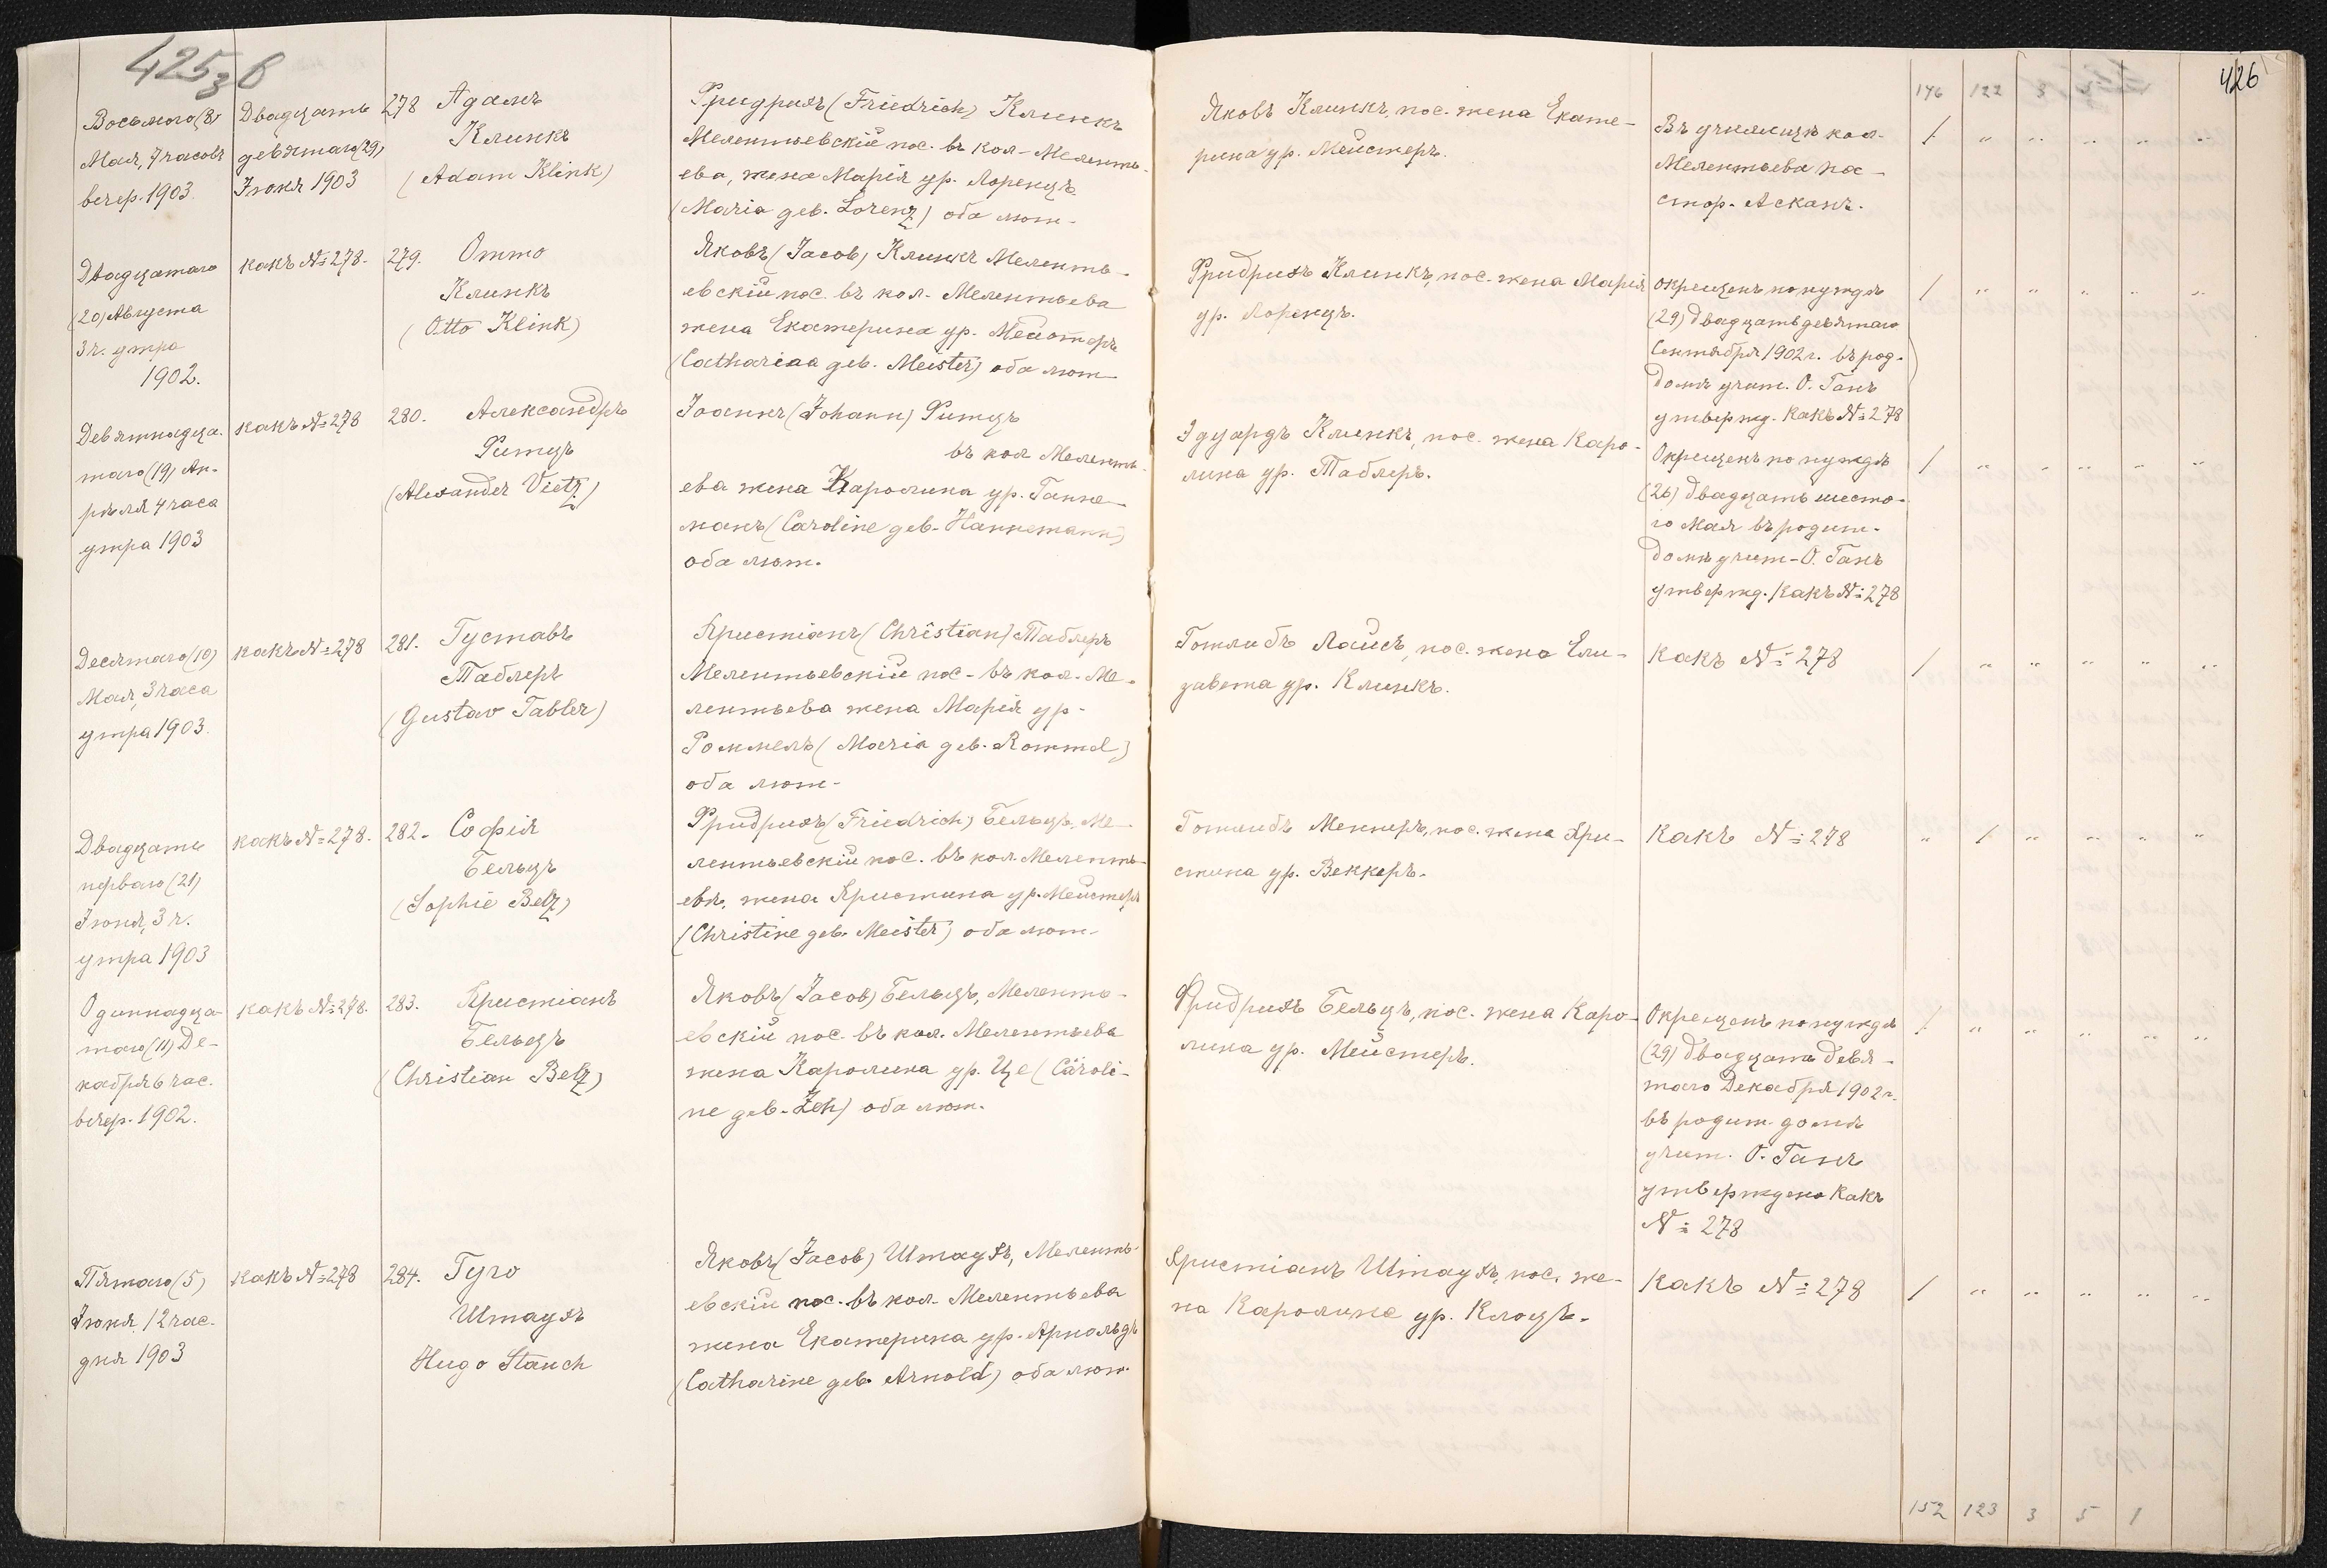 425 зв
426
146 122 3 5
Восьмого (8)
Мая, 7 часовъ
вечер. 1903.
Двадцать
девятаго (29)
Іюня 1903
278 Адамъ
Клинкъ
(Adam Klink)
Фридрихъ (Friedrich) Клинкъ
Мелентьевскій пос. въ кол. Меленть-
ева, жена Марія ур. Лоренцъ
(Maria geb. Lorenz) оба лют.
Яковъ Клинкъ, пос. жена Екате-
рина ур. Мейстеръ.
Въ училищѣ кол.
Мелентьева па-
стор. Асканъ.
1 " " " " "
Двадцатаго
(20) Августа
3 ч. утра
1902.
какъ № 278.
279. Отто
Клинкъ
(Otto Klink)
Яковъ (Jacob) Клинкъ Меленть-
евскій пос. въ кол. Мелентьева
жена Екатерина ур. Мейстеръ
(Catharina geb. Meister) оба лют
Фридрихъ Клинкъ, пос. жена Марія
ур. Лоренцъ.
Окрещенъ по нуждѣ
(29) двадцать девятаго
Сентября 1902 г. въ род.
домѣ учит. О. Ганъ
утвержд. какъ № 278
1 " " " " "
Девятнадца-
таго (19) Ап-
рѣля 4 часа
утра 1903
какъ № 278
280. Александръ
Фитцъ
(Alexander Vietz)
Іоаннъ (Johann) Фитцъ
въ кол Меленть-
ева жена Каролина ур. Ганне-
манъ (Caroline geb. Hannemann)
оба лют.
Эдуардъ Клинкъ, пос. жена Каро-
лина ур. Таблеръ.
Окрещенъ по нуждѣ
(26) двадцать шесто-
го Мая въ родит.
домѣ учит. О. Ганъ
утвержд. какъ № 278
1 " " " " "
Десятаго (10)
Мая, 3 часа
утра 1903.
какъ № 278
281. Густавъ
Таблеръ
(Gustav Tabler)
Христіанъ (Christian) Таблеръ
Мелентьевскій пос. въ кол. Ме-
лентьева жена Марія ур.
Роммель (Maria geb. Rommel)
оба лют.
Готлибъ Лаисъ, пос. жена Ели-
завета ур. Клинкъ.
Какъ № 278
1 " " " " "
Двадцать
перваго (21)
Іюня, 3 ч.
утра 1903
какъ № 278.
282. Софія
Бельцъ
(Sophie Belz)
Фридрихъ (Friedrich) Бельцъ, Ме-
лентьевскій пос. въ кол. Меленть-
ева, жена Христина ур. Мейстеръ
(Christine geb. Meister) оба лют.
Готлибъ пос. жена Хри-
стина ур. Веккеръ.
Какъ № 278
" 1 " " " "
Одиннадца-
таго (11) Де-
кабря 6 час.
вечер. 1902.
какъ № 278.
283. Христіанъ
Бельцъ
(Christian Belz)
Яковъ (Jacob) Бельцъ, Меленть-
евскій пос. въ кол. Мелентьева
жена Каролина ур. Це (Caroli-
ne geb. Zeh) оба лют.
Фридрихъ Бельцъ, пос. жена Каро-
лина ур. Мейстеръ.
Окрещенъ по нуждѣ
(29) двадцать девя-
таго Декабря 1902 г.
въ родит. домѣ
учит. О. Ганъ
утверждено какъ
№ 278
1 " " " " "
Пятаго (5)
Іюня, 12 час.
дня 1903
какъ № 278
284. Гуго
Штаухъ
Hugo Stauch
Яковъ (Jacob) Штаухъ, Меленть-
евскій пос. въ кол. Мелентьева
жена Екатерина ур. Арнольдъ
(Catharine geb. Arnold) оба лют.
Христіанъ Штаухъ, пос. же-
на Каролина ур. Клоцъ.
Какъ № 278
1 " " " " "
152 123 3 5 1